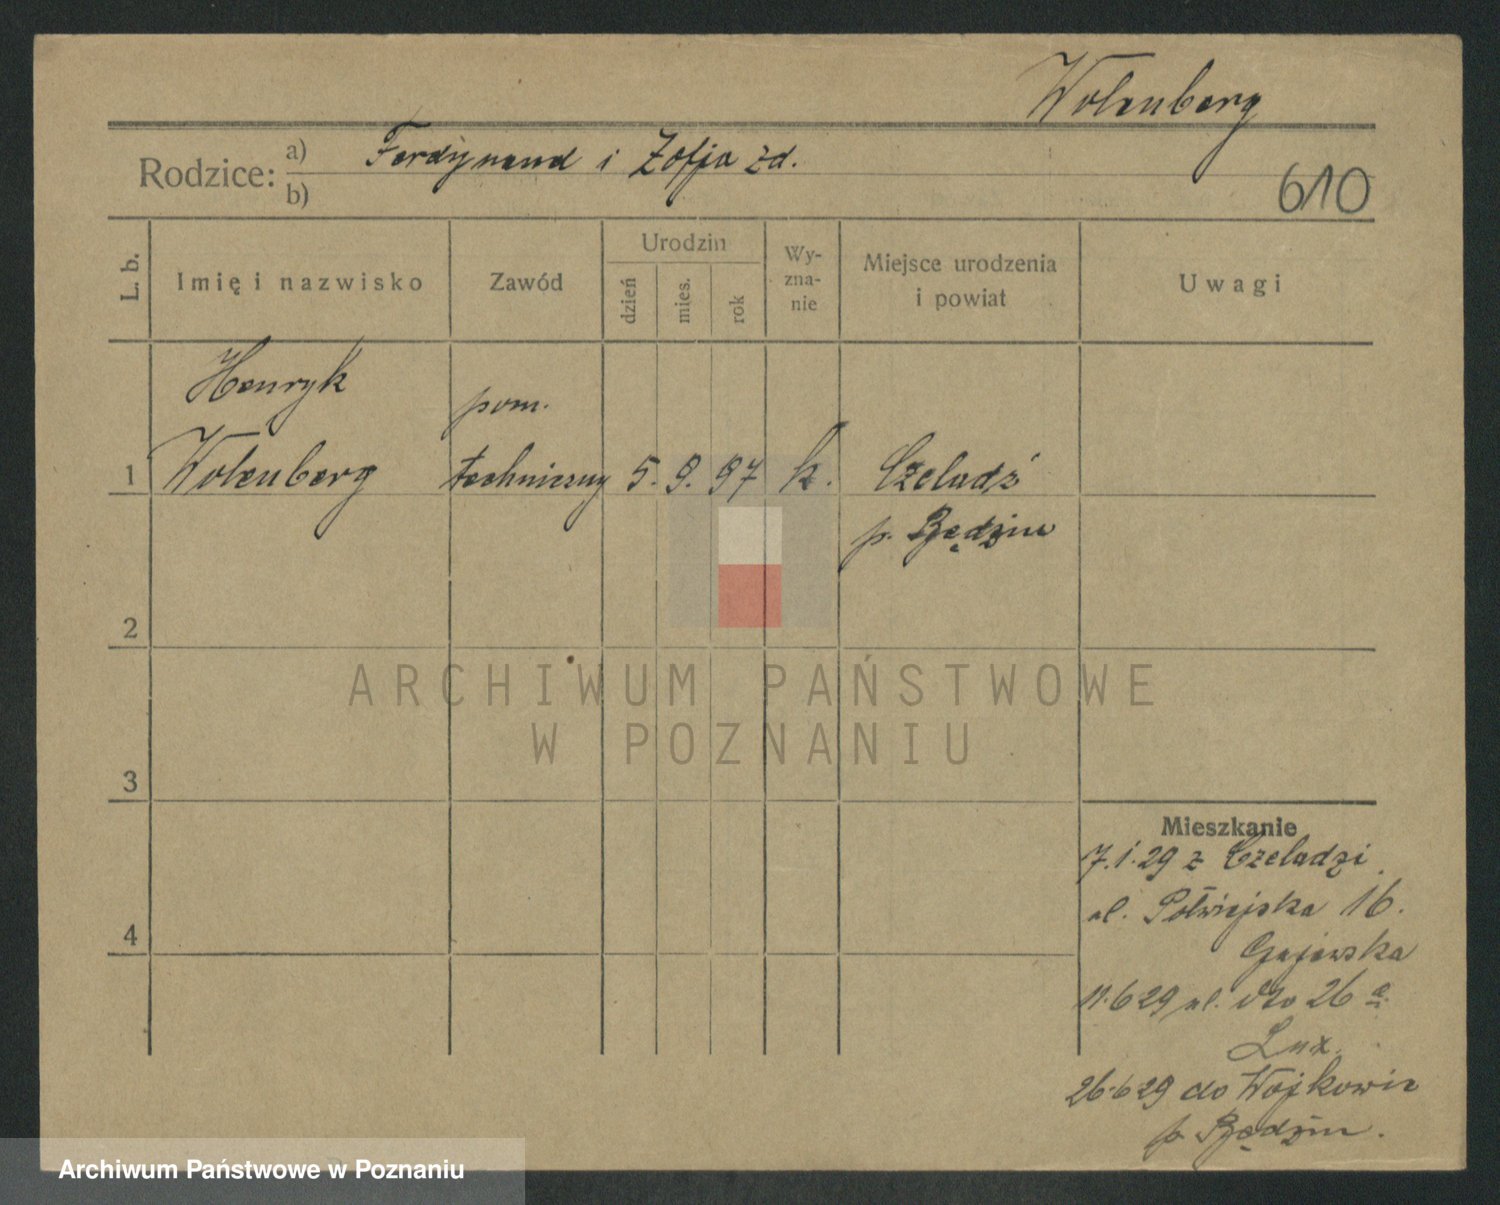 Wolenberg
Rodzice: a) Ferdynand i Zofja zd.
b)
610
L. b. Imię i nazwisko Zawód Urodzin dzień mies. rok Wy-zna-nie Miejsce urodzenia i powiat Uwagi
Henryk pom.
1 Wolenberg techniczny 5. 9. 97 k. Czeladź
p. Będzin
2
ARCHIWUM PAŃSTWOWE
W POZNANIU
3
Mieszkanie
7.1.29 z Czeladzi
ul. Półwiejska 16.
4
Gajewska
11.6 29 ul. 26 a
Lux.
26.6 29 do Wojkowic
p. Będzin.
Archiwum Państwowe w Poznaniu